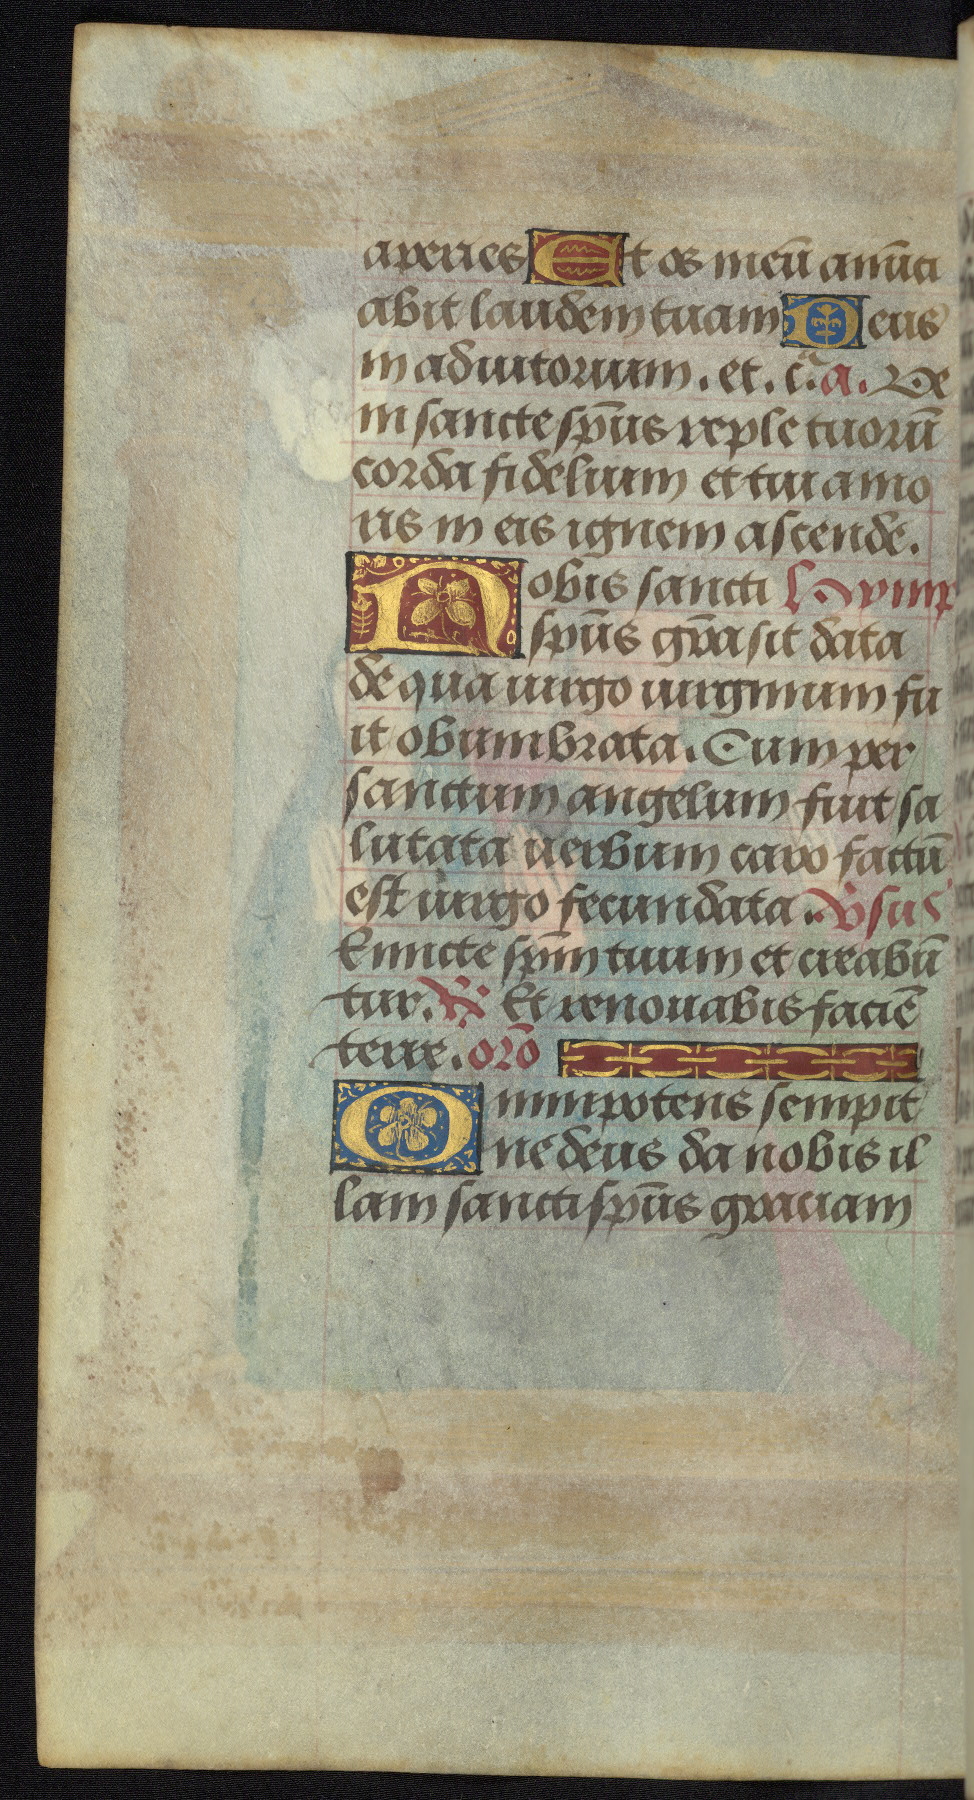 aperies Et os meū anūci
abit laudem tuam Deus
in adiutorium . et . c̄. a . Ve
ni sancte sp̄us reple tuorū
corda fidelium et tui amo
ris in eis ignem ascende.
Nobis sancti hympn
sp̄us gr̄a sit data
de qua uirgo uirginum fu
it obumbrata. Cum per
sanctum angelum fuit sa
lutata uerbum caro factū
est uirgo fecundata. v̄sus
Emicte sp̄m tuum et creabū
tur. R̄ Et renouabis faciē
terre. orō
Omnipotens sempit
ne deus da nobis il
lam sancti sp̄us graciam